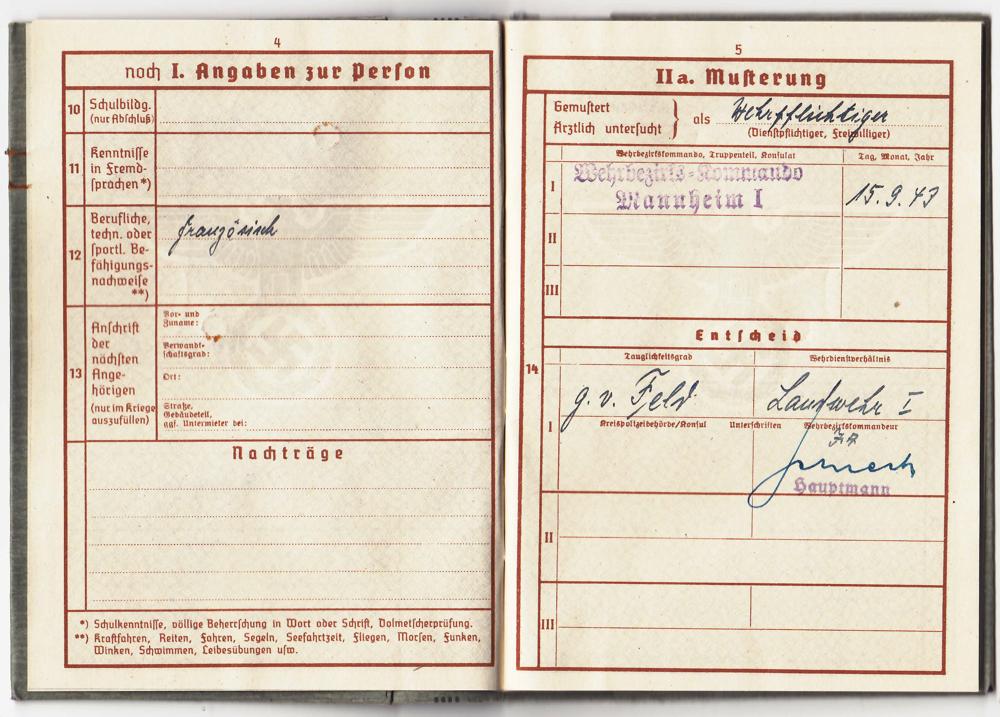 4
noch I. Angaben zur Person
10 Schulbildg.
(nur Abschluß)
11 Kenntnisse
in Fremd-
sprachen*)
12 Berufliche,
techn. oder
sportl. Be-
fähigungs-
nachweise
**)
französisch
13 Anschrift
der
nächsten
Ange-
hörigen
(nur im Kriege
auszufüllen)
Vor- und
Zuname:
Verwandt-
schaftsgrad:
Ort:
Straße,
Gebäudeteil,
ggf. Untermieter bei:
Nachträge
*) Schulkenntnisse, völlige Beherrschung in Wort oder Schrift, Dolmetscherprüfung.
**) Kraftfahren, Reiten, Fahren, Segeln, Seefahrtzeit, Fliegen, Morsen, Funken,
Winken, Schwimmen, Leibesübungen usw.
5
IIa. Musterung
Gemustert
Ärztlich untersucht } als Wehrpflichtiger
(Dienstpflichtiger, Freiwilliger)
Wehrbezirkskommando, Truppenteil, Konsulat Tag, Monat, Jahr
I Wehrbezirks-Kommando
Mannheim I 15.9.43
II
III
Entscheid
14
Tauglichkeitsgrad Wehrdienstverhältnis
I g. v. Feld Landwehr I
Kreispolizeibehörde/Konsul Unterschriften Wehrbezirkskommandeur
Hauptmann
II
III